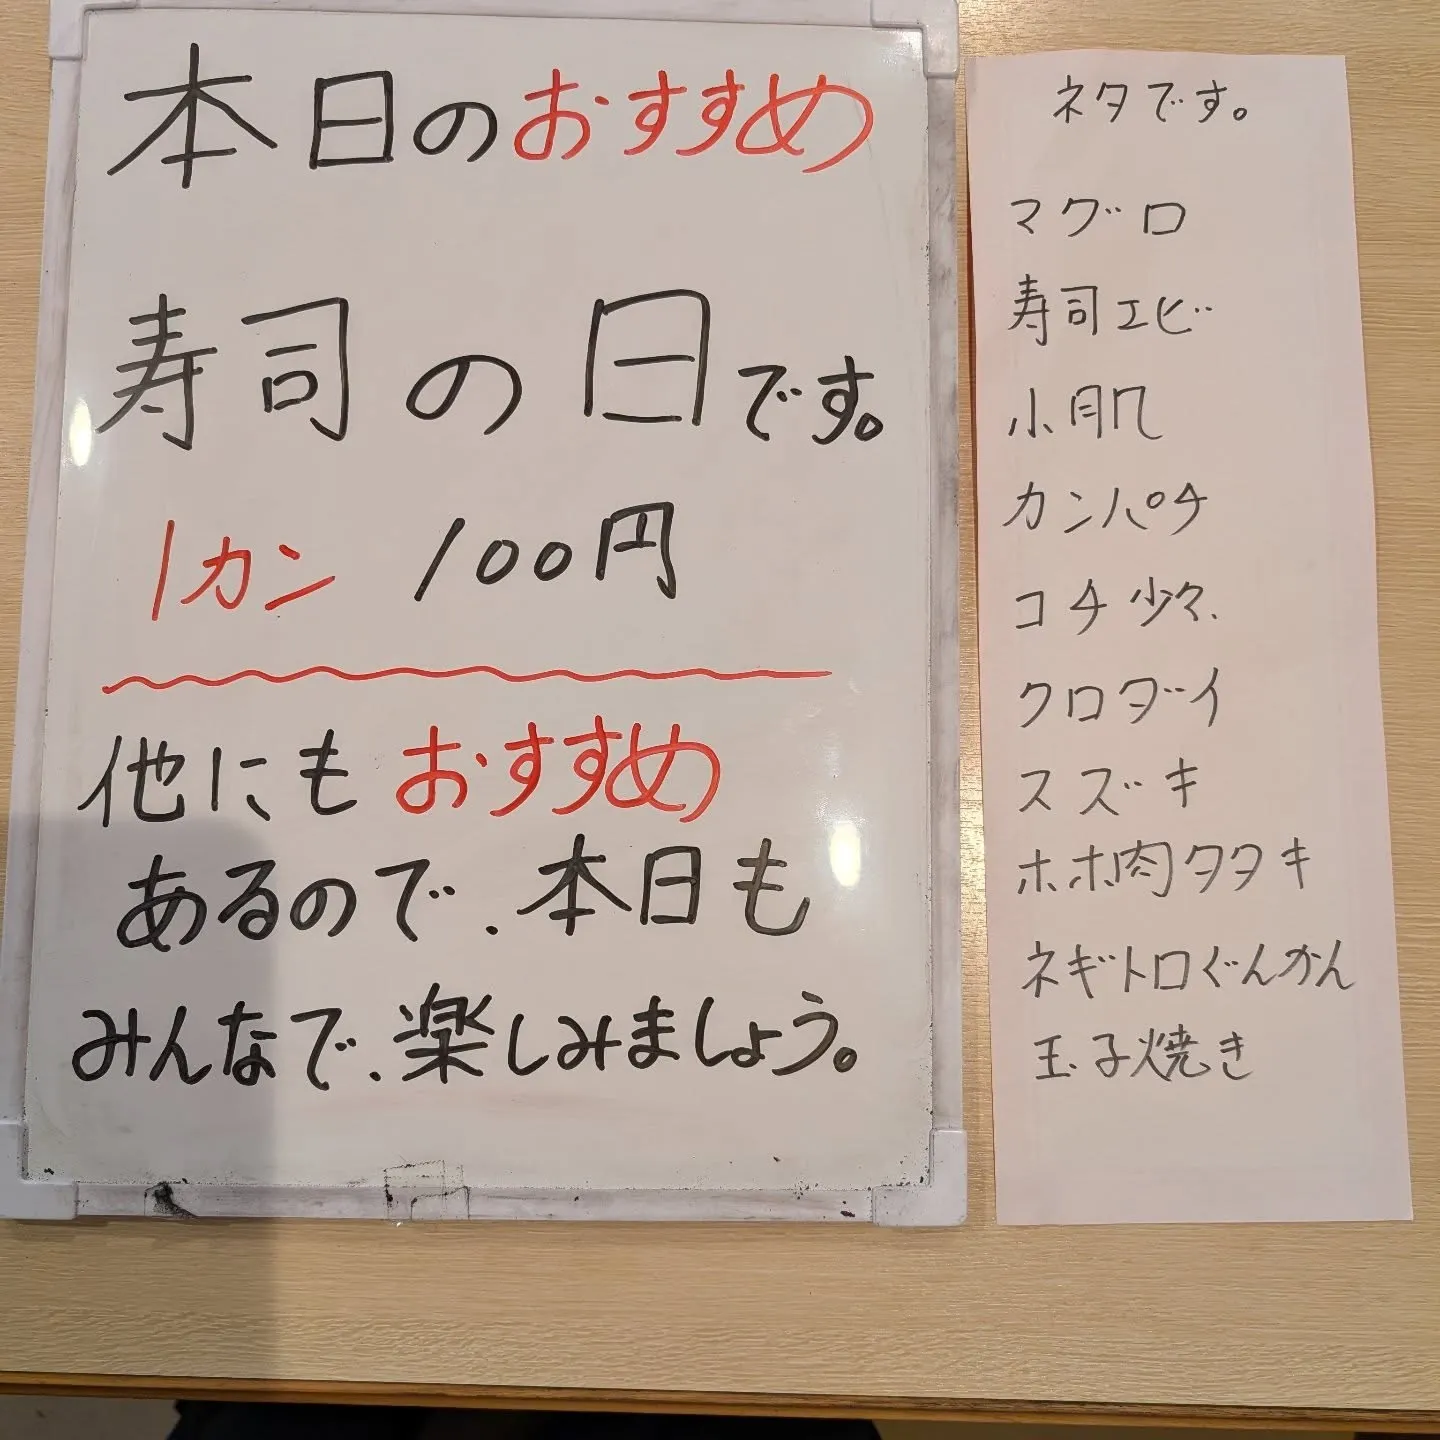 本日のおすすめ
寿司の日です。
1カン 100円
他にもおすすめ
あるので、本日も
みんなで、楽しみましょう。
ネタです。
マグロ
寿司エビ
小肌
カンパチ
コチ少々、
クロダイ
スズキ
ホホ肉タタキ
ネギトロぐんかん
玉子焼き